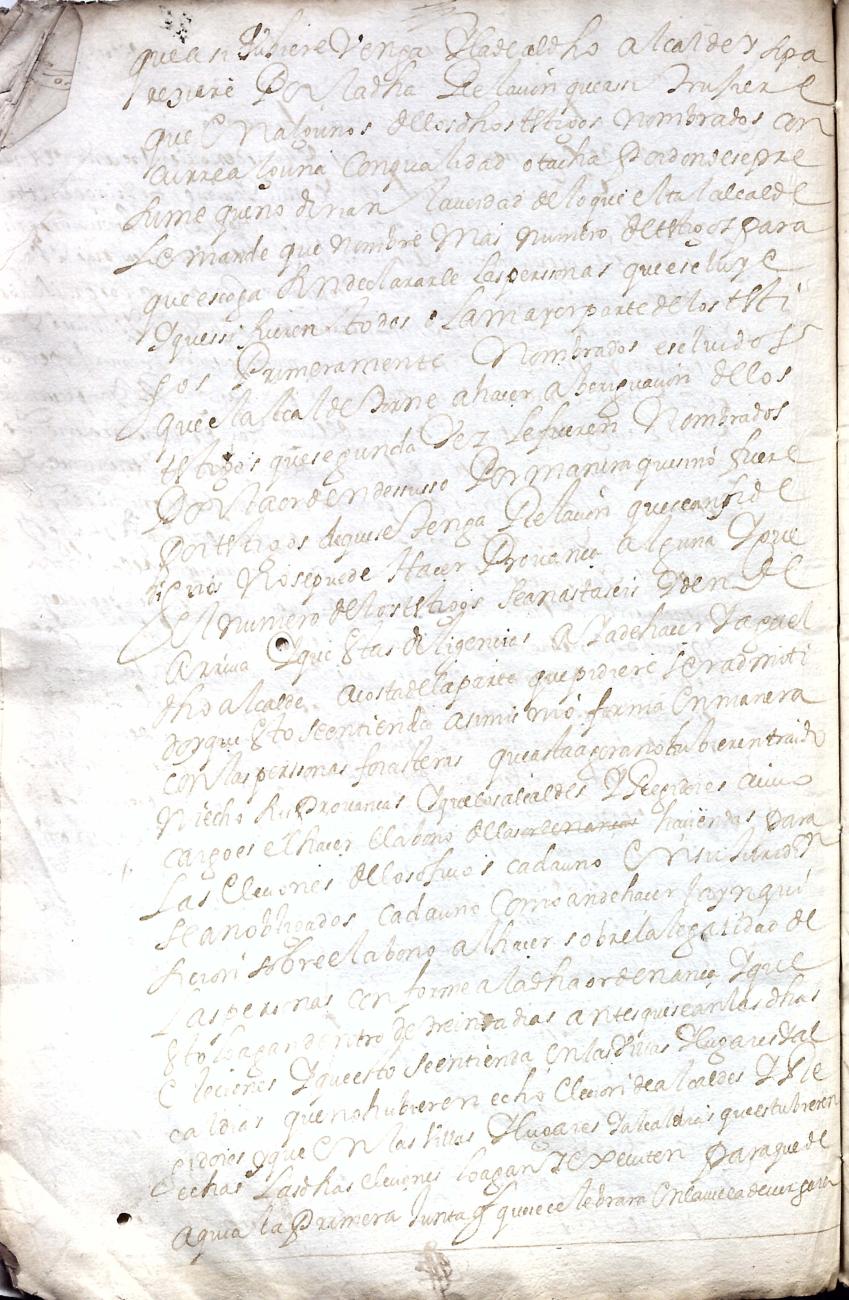 que asi hubiere venga el tal dho alcalde y si pa
reçiere Por la dha Relaçion que asi truxere
que En algunos de los dhos testigos nombrados con
curre alguna con qualidad o tacha Por donde se pre
sume que no diran la verdad de lo que el tal alcalde
Le mande que nombre mas numero de testigos para
que escoga sin declararle las personas que escluye
Y que si fueren todos o La mayor parte de los testi
gos Primeramente Nombrados escluidos
que el alcalde torne a haçer aberiguaçion de los
testigos que segunda Vez le fueren Nombrados
Por la orden de susso Por manera que si no fuere
Por testigos de que se tenga Relaçion que sean fide
dignos No se puede Haçer Provança alguna Y que
El numero de los testigos sean asta seis Y den de
arriva Y que estas diligençias aya de haçer Y aquel
dho alcalde a costa de la parte que pidiere ser admiti
do y que esto se entienda asi mismo forma En manera
con las personas forasteras que asta agora no hubieren traido
ni echo sus Provanças Y que los alcaldes Y Regidores a cuio
cargo es el haçer El abono de las haçiendas para
Las Eleçiones de los ofiçios cada uno En su Juridiçion
sean obligados cada uno como an de haçer la ynqui
siçion sobre el abono a haçer sobre la legalidad de
Las personas conforme a la dha ordenança Y que
Esto hagan dentro de treinta dias antes que sean las dhas
Eleçiones Y que esto se entienda En las Villas Y lugares Y al
caldias que no hubieren echo Eleçion de alcaldes Y Re
gidores Y que En las Villas Y lugares Y alcaldias que estubieren
Echas Las dhas eleçiones lo agan Y Executen Para que de
aqui a la Primera Junta g que se çelebrara En la villa de vergara